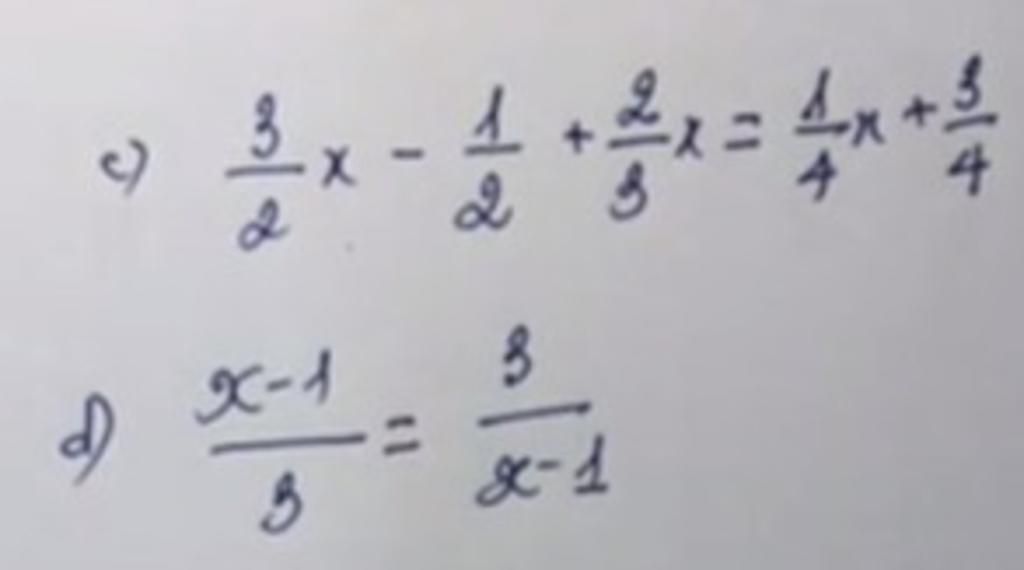 c) 3/2 x - 1/2 + 2/3 x = 1/4 x + 3/4
d) x-1/3 = 3/x-1